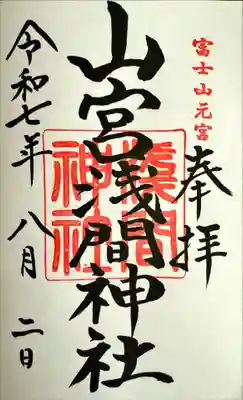 富士山元宮
奉拝
山宮浅間神社
浅間
神社
令和七年
八月
二日